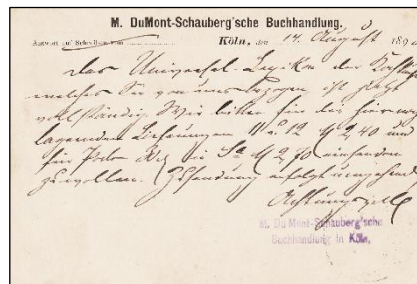 M. DuMont-Schauberg'sche Buchhandlung.
Antwort auf Schreiben vom
Köln, den 14. August 189
Das Universal-Lexikon der Kochkunst
welches Sie von uns bezogen ist jetzt
vollständig. Wir bitten für die hier noch
lagernden Lieferungen 11 u. 12 M 2,40 und
für Porto in Sa M 2,70 einsenden
zu wollen. Zusendung erfolgt umgehend
Achtungsvoll
M. Du Mont-Schauberg'sche
Buchhandlung in Köln,